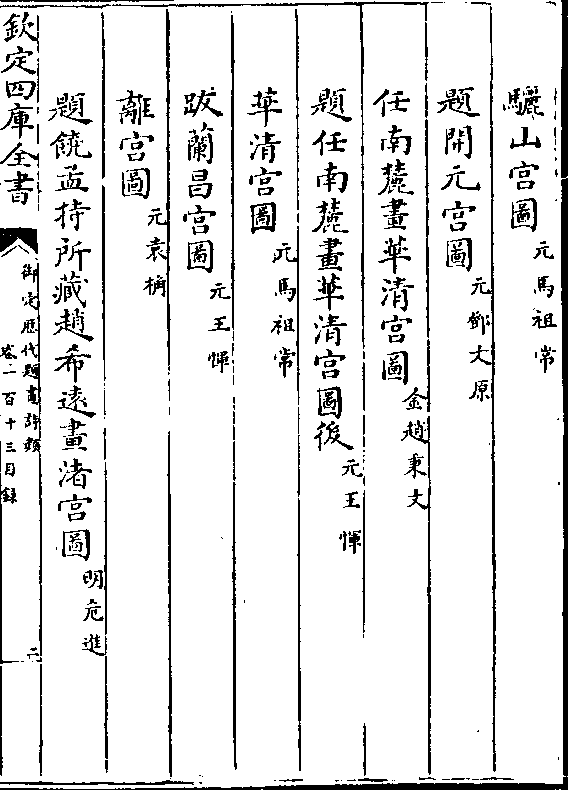 驪山宫圖 元馬祖常
題開元宫圖 元鄧文原
任南麓畫華清宫圖 金趙秉文
題任南麓畫華清宫圖後 元王惲
華清宫圖 元馬祖常
跋蘭昌宫圖 元王惲
離宫圖 元袁桷
題饒孟持所藏趙希遠畫渚宫圖 明危進
欽定四庫全書
御定歴代題畫詩類
卷一百十三目錄
二